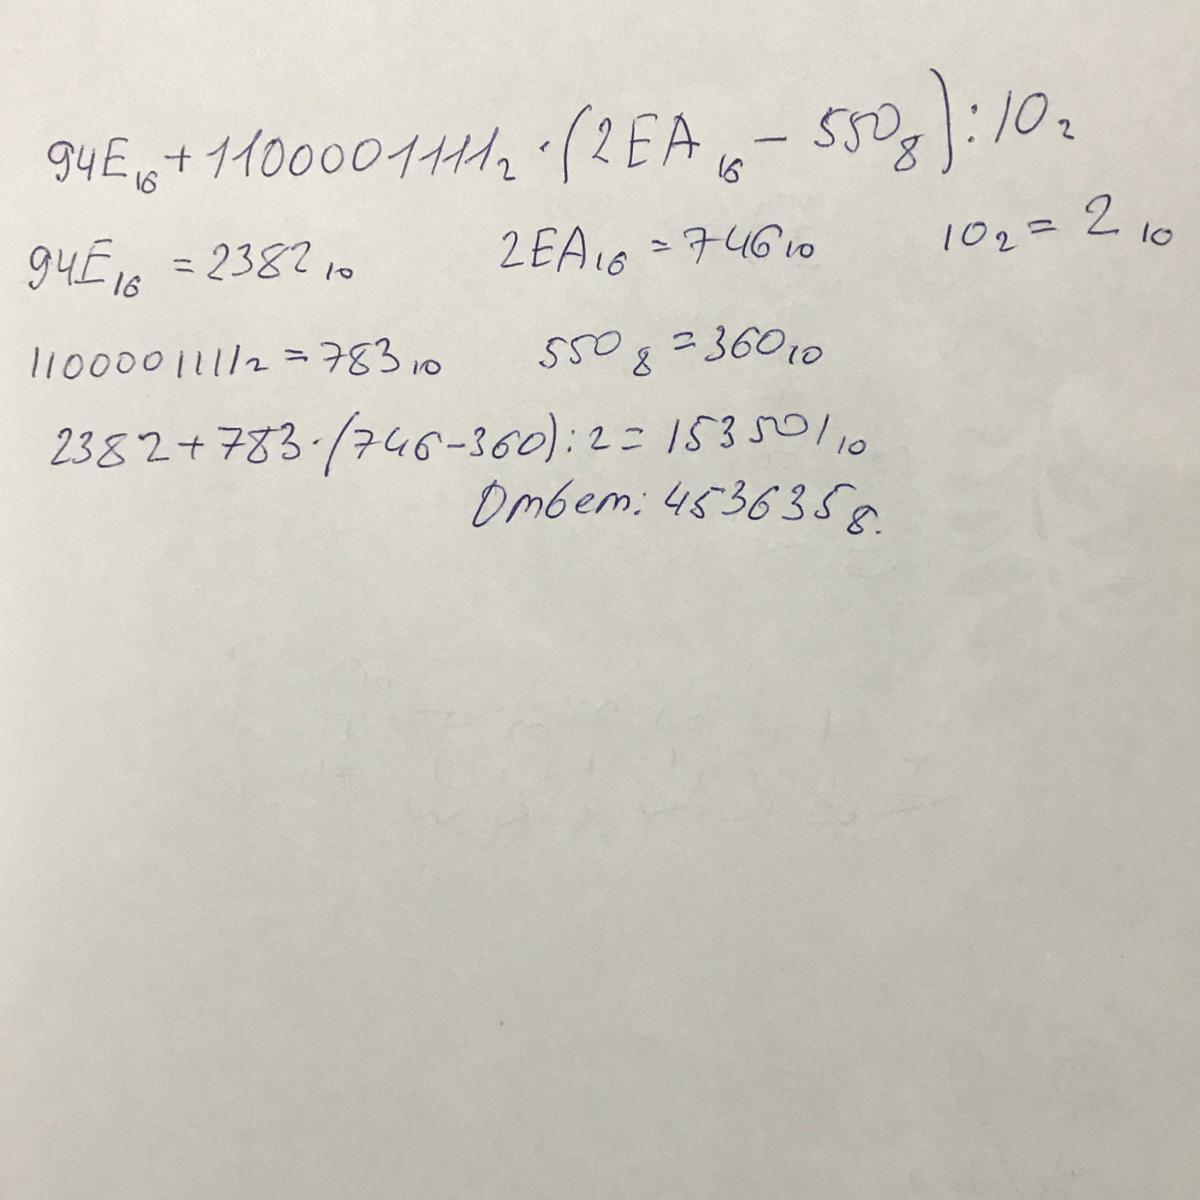 94E₁₆ + 1100001111₂ · (2EA₁₆ − 550₈) : 10₂
94E₁₆ = 2382₁₀ 2EA₁₆ = 746₁₀ 10₂ = 2₁₀
1100001111₂ = 783₁₀ 550₈ = 360₁₀
2382 + 783 · (746 − 360) : 2 = 153501₁₀
Ответ: 453635₈.